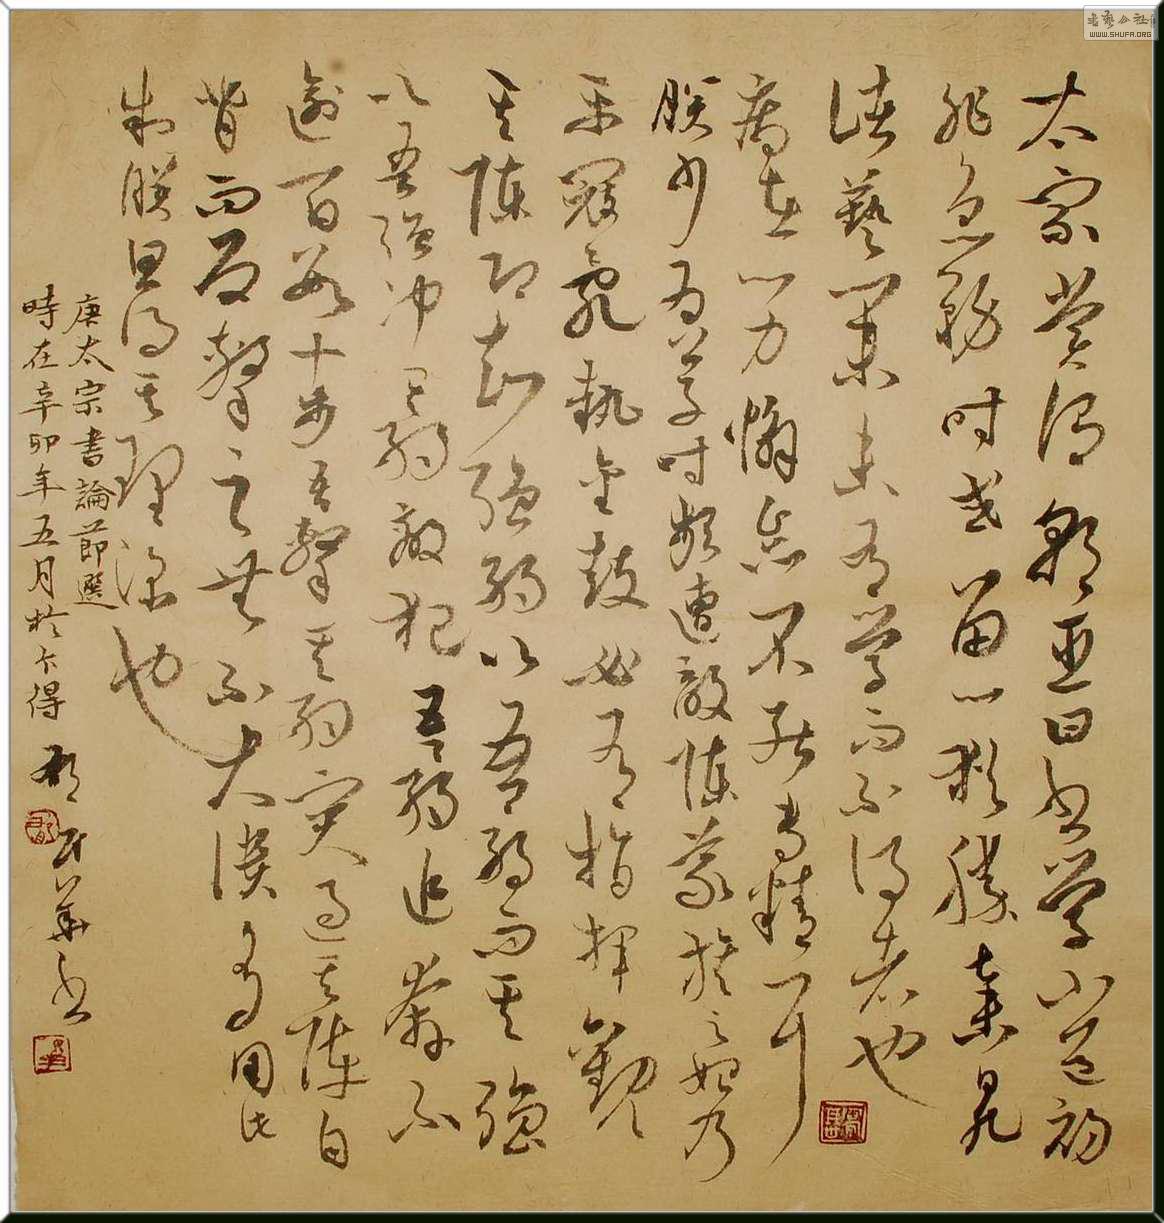 太宗嘗謂朝臣曰書學小道初
非急務時或留心猶勝棄日凡
諸藝業未有學而不得者也
病在心力懈怠不能專精耳
朕少為學時頻遭敵陣義旗之始乃
平寇亂執金鼓必有指揮觀
其陳即知強弱以吾弱而其強
以吾強冲其弱敵犯吾弱追奔不
逾百數十步吾擊其弱突過其陣自
背而反擊之無不大潰多用此
制朕思得其理深也
庚太宗書論節選
時在辛卯年五月於介得 胡民華書
WWW.SHUFA.ORG